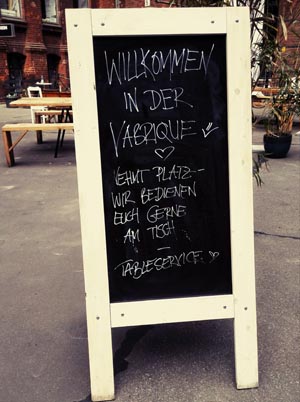 WILLKOMMEN
IN DER
VABRIQUE
NEHMT PLATZ--
WIR BEDIENEN
EUCH GERNE
AM TISCH
–
TABLESERVICE.